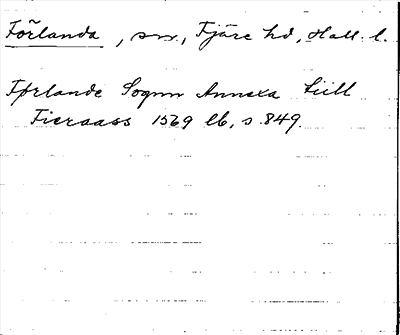 Förlanda, sn., Fjäre hd, Hall. l.
Førlande Sognn Annexa tiill
Fieraass 1569 lb, s. 849.